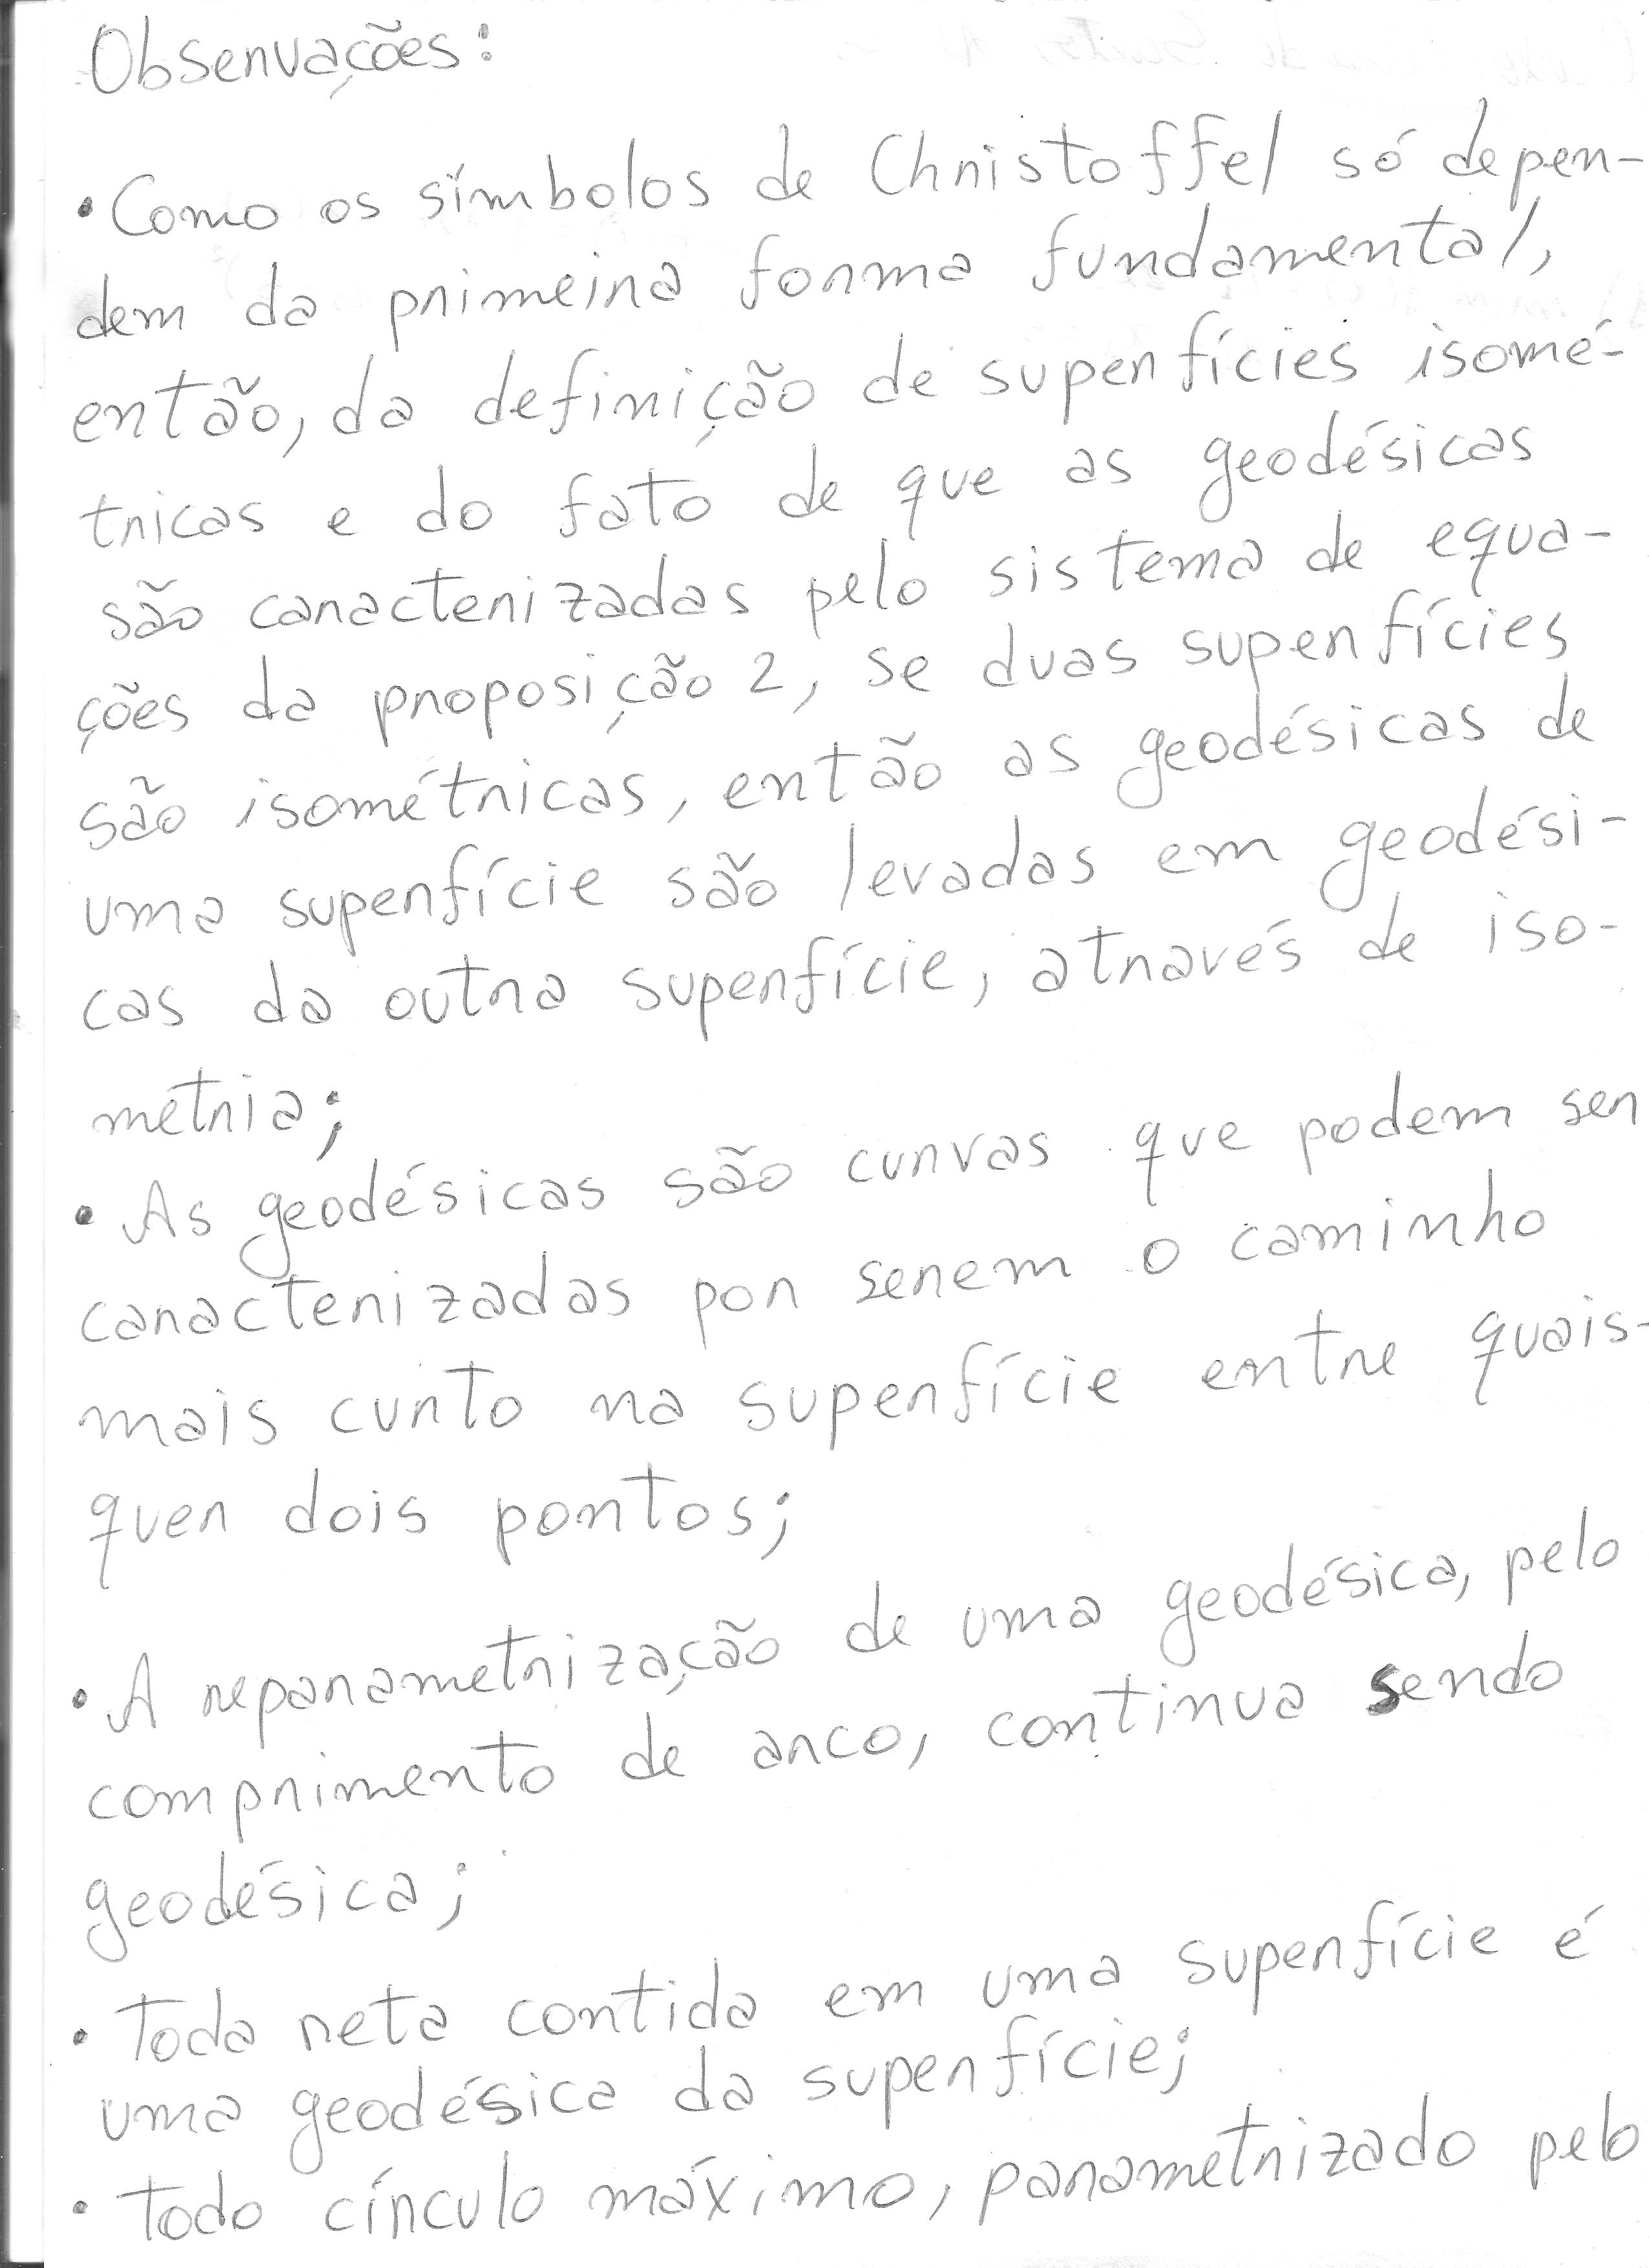 Observações:
• Como os símbolos de Christoffel só depen-
dem da primeira forma fundamental,
então, da definição de superfícies isomé-
tricas e do fato de que as geodésicas
são caracterizadas pelo sistema de equa-
ções da proposição 2, se duas superfícies
são isométricas, então as geodésicas de
uma superfície são levadas em geodési-
cas da outra superfície, através de iso-
metria;
• As geodésicas são curvas que podem ser
caracterizadas por serem o caminho
mais curto na superfície entre quais-
quer dois pontos;
• A reparametrização de uma geodésica, pelo
comprimento de arco, continua sendo
geodésica;
• Toda reta contida em uma superfície é
uma geodésica da superfície;
• Todo círculo máximo, parametrizado pelo